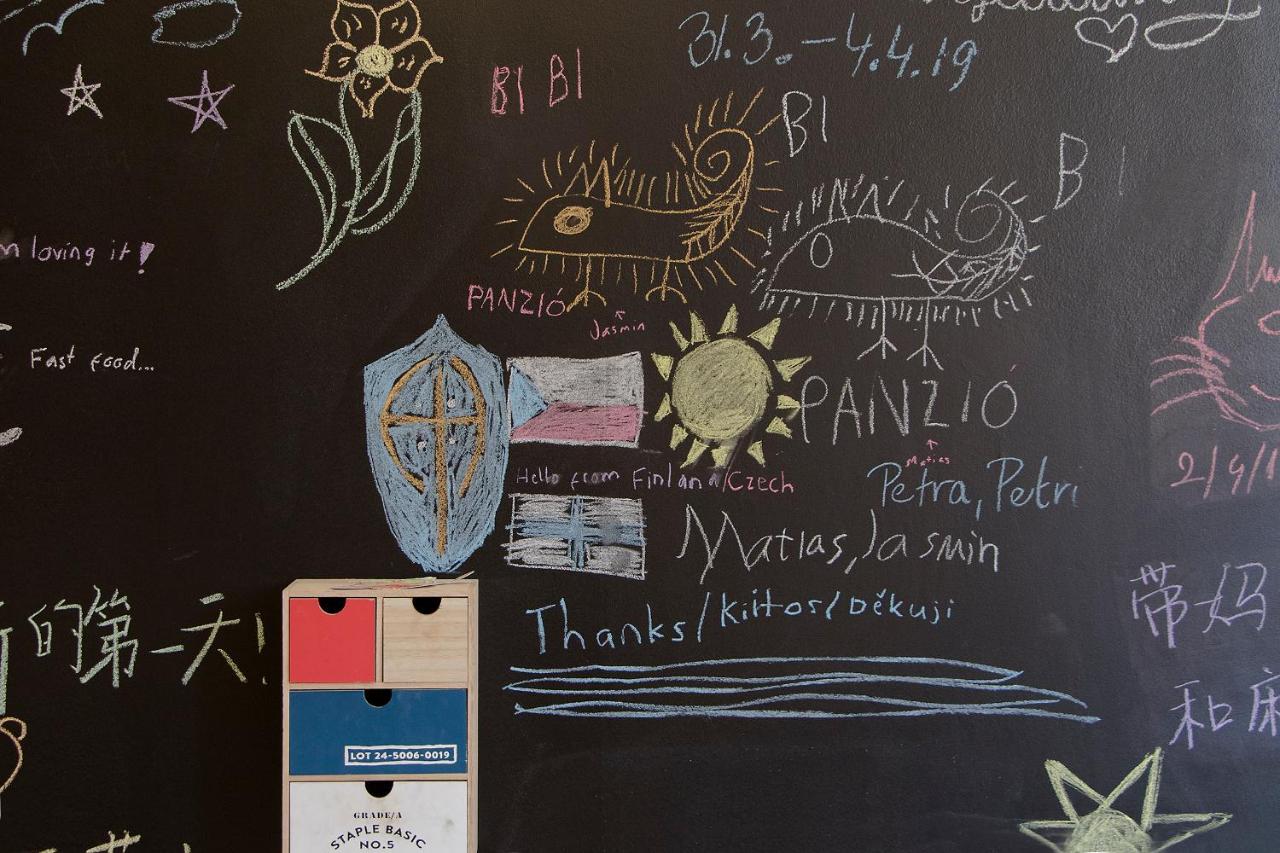 31.3.-4.4.19
BI BI
BI
BI
loving it!
PANZIÓ
Jasmin
Fast food...
PANZIÓ
Matias
Hello from Finland/Czech
Petra, Petri
2/4/1
Matias, Jasmin
Thanks/Kiitos/Děkuji
的第一天!
带妈
和床
LOT 24-5006-0019
GRADE/A
STAPLE BASIC
NO.5